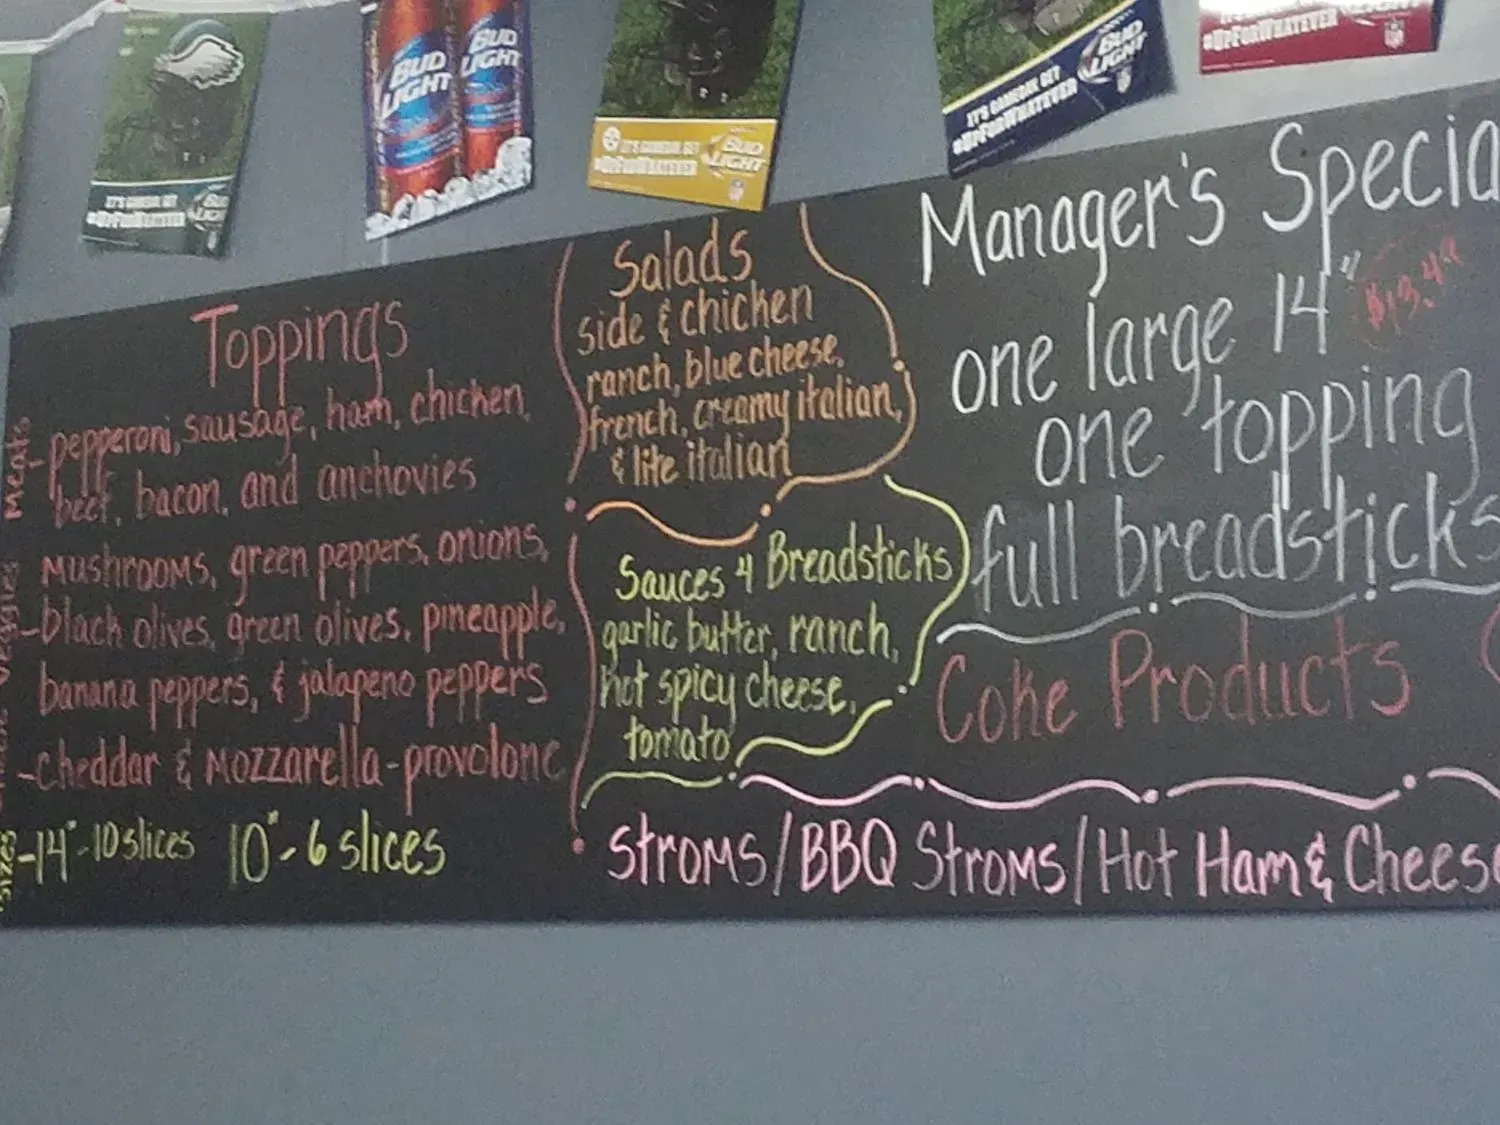 BUD LIGHT
BUD LIGHT
IT'S GAMEDAY. GET
#UPFORWHATEVER
BUD LIGHT
IT'S GAMEDAY. GET
#UPFORWHATEVER
BUD LIGHT
NFL
IT'S GAMEDAY. GET
#UPFORWHATEVER
BUD LIGHT
#UPFORWHATEVER
NFL
Toppings
Meats
- pepperoni, sausage, ham, chicken,
beef, bacon, and anchovies
Veggies
mushrooms, green peppers, onions,
-black olives, green olives, pineapple,
banana peppers, & jalapeno peppers
-cheddar & mozzarella-provolone
Sizes
-14"-10 slices 10"-6 slices
Salads
side & chicken
ranch, blue cheese,
french, creamy italian,
& lite italian
Sauces 4 Breadsticks
garlic butter, ranch,
hot spicy cheese,
tomato
Manager's Specia
one large 14" $13.49
one topping
full breadsticks
Coke Products
Stroms/BBQ Stroms/Hot Ham & Cheese